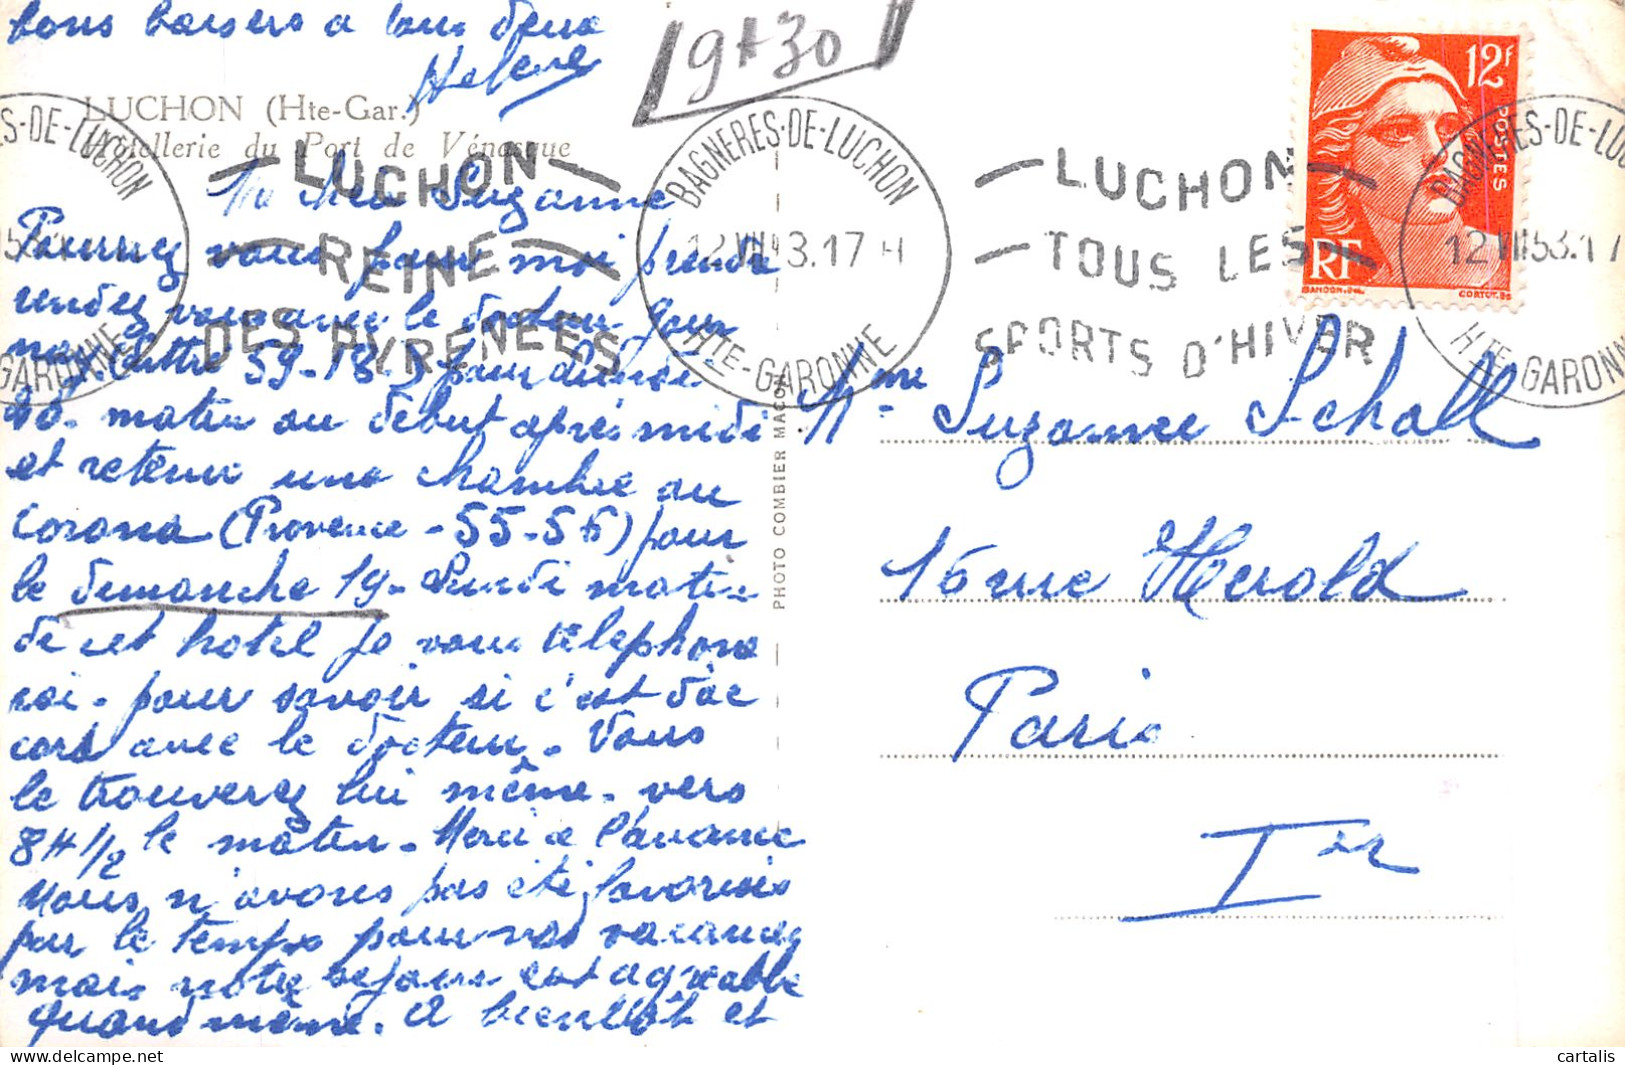 bons baisers a tous deux
Helene
9H30
LUCHON (Hte-Gar.)
Hotellerie du Port de Vénasque
S-DE-LUCHON
GARONNE
LUCHON
REINE
DES PYRENEES
BAGNERES-DE-LUCHON
12 VII 3.17 H
HTE-GARONNE
LUCHON
TOUS LES
SPORTS D'HIVER
BAGNERES-DE-LUC
12 VII 53.17
HTE GARONN
12f
POSTES
RF
GANDON.
CORTOT.
Ma chere Suzanne
Pourrez vous pour moi prendre
rendez vous avec le docteur pour
59-18 pour
matin ou debut après midi
et retenir une chambre au
Corona (Provence - 55-56) pour
le dimanche 19. Lundi matin
de cet hotel je vous telephone
rai. pour savoir si c'est dac
cord avec le docteur. Vous
le trouverez lui même. vers
8H 1/2 le matin. Merci a l'avance
Nous n'avons pas été favorisés
par le temps pour nos vacances
mais notre sejour est agreable
quand même. A bientôt et
PHOTO COMBIER MACON
Mme Suzanne Schall
16 rue Herold
Paris
Ier
delcampe.net
cartalis